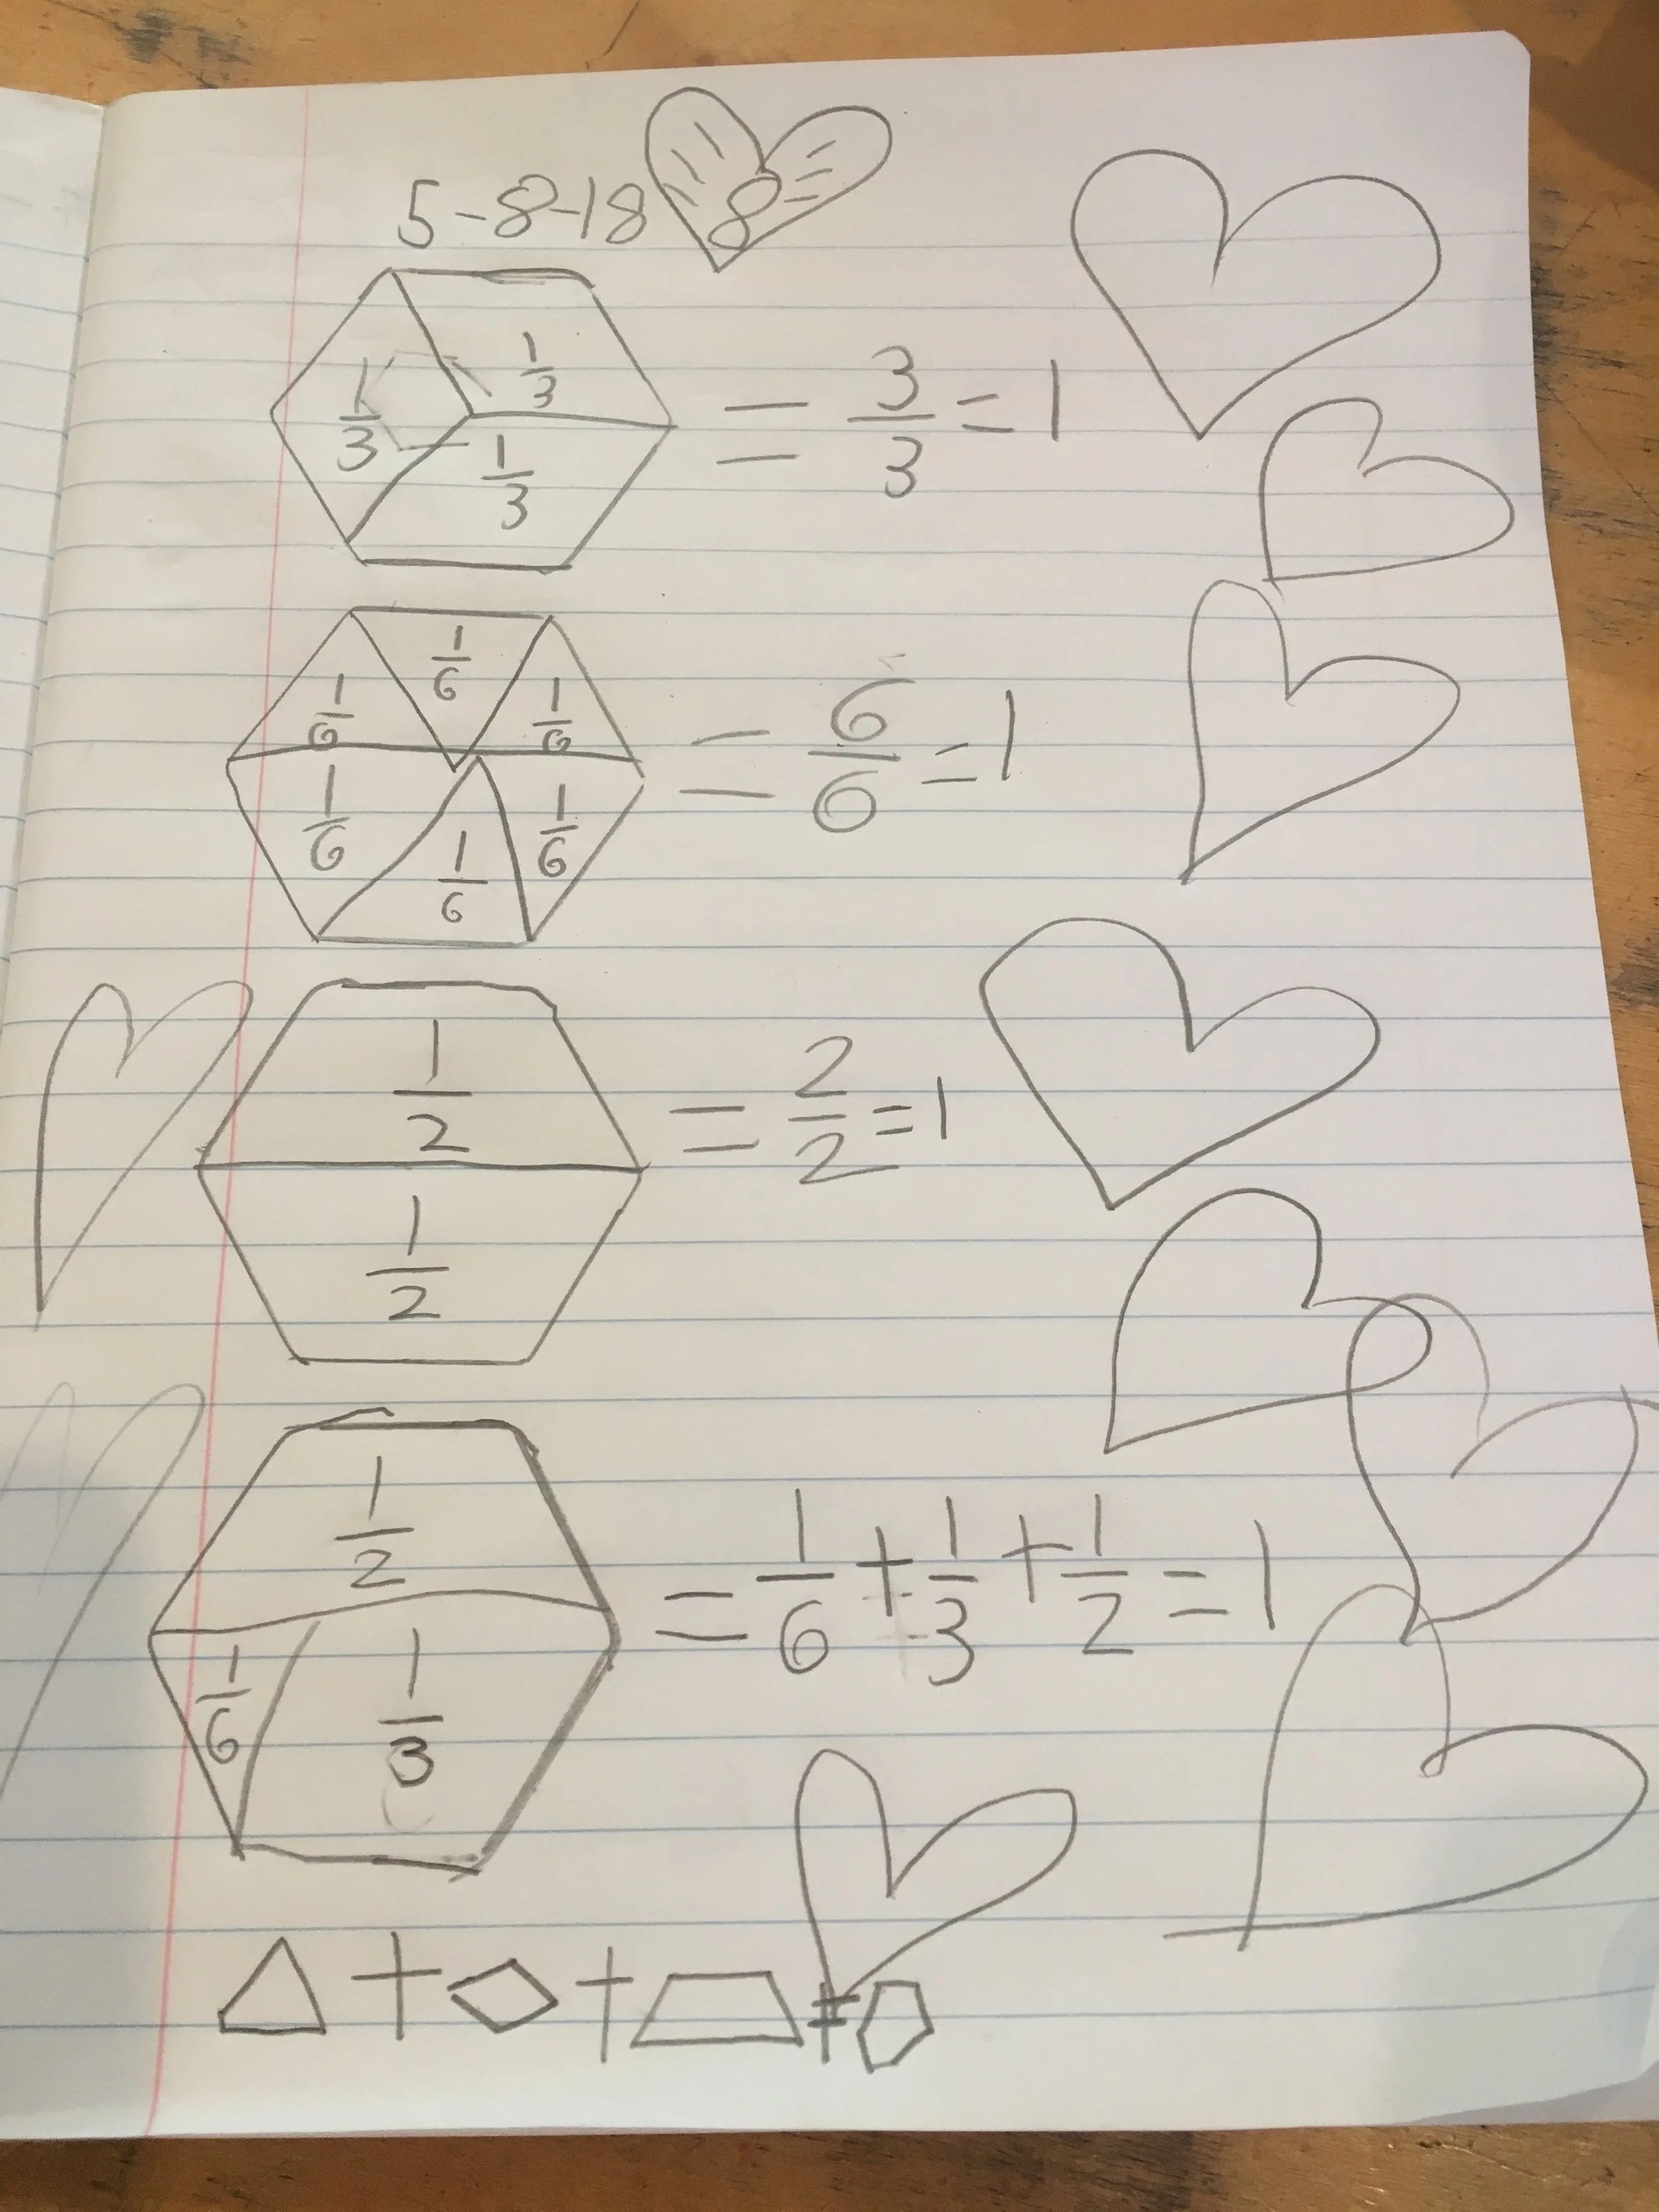 5-8-18 8
1/3 1/3 1/3 = 3/3 = 1
1/6 1/6 1/6 1/6 1/6 1/6 = 6/6 = 1
1/2 1/2 = 2/2 = 1
1/2 1/6 1/3 = 1/6 + 1/3 + 1/2 = 1
△ + ◇ + ⏢ = ⬡